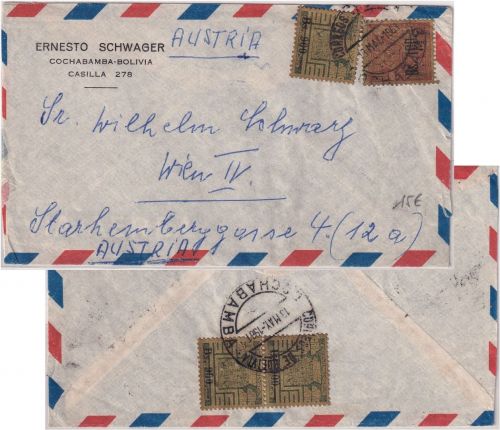 ERNESTO SCHWAGER
COCHABAMBA-BOLIVIA
CASILLA 278
AUSTRIA
Sr. Wilhelm Schwarz
Wien IV.
15€
Starhemberggasse 4.(12a)
AUSTRIA
COCHABAMBA
13 MAY.-1961